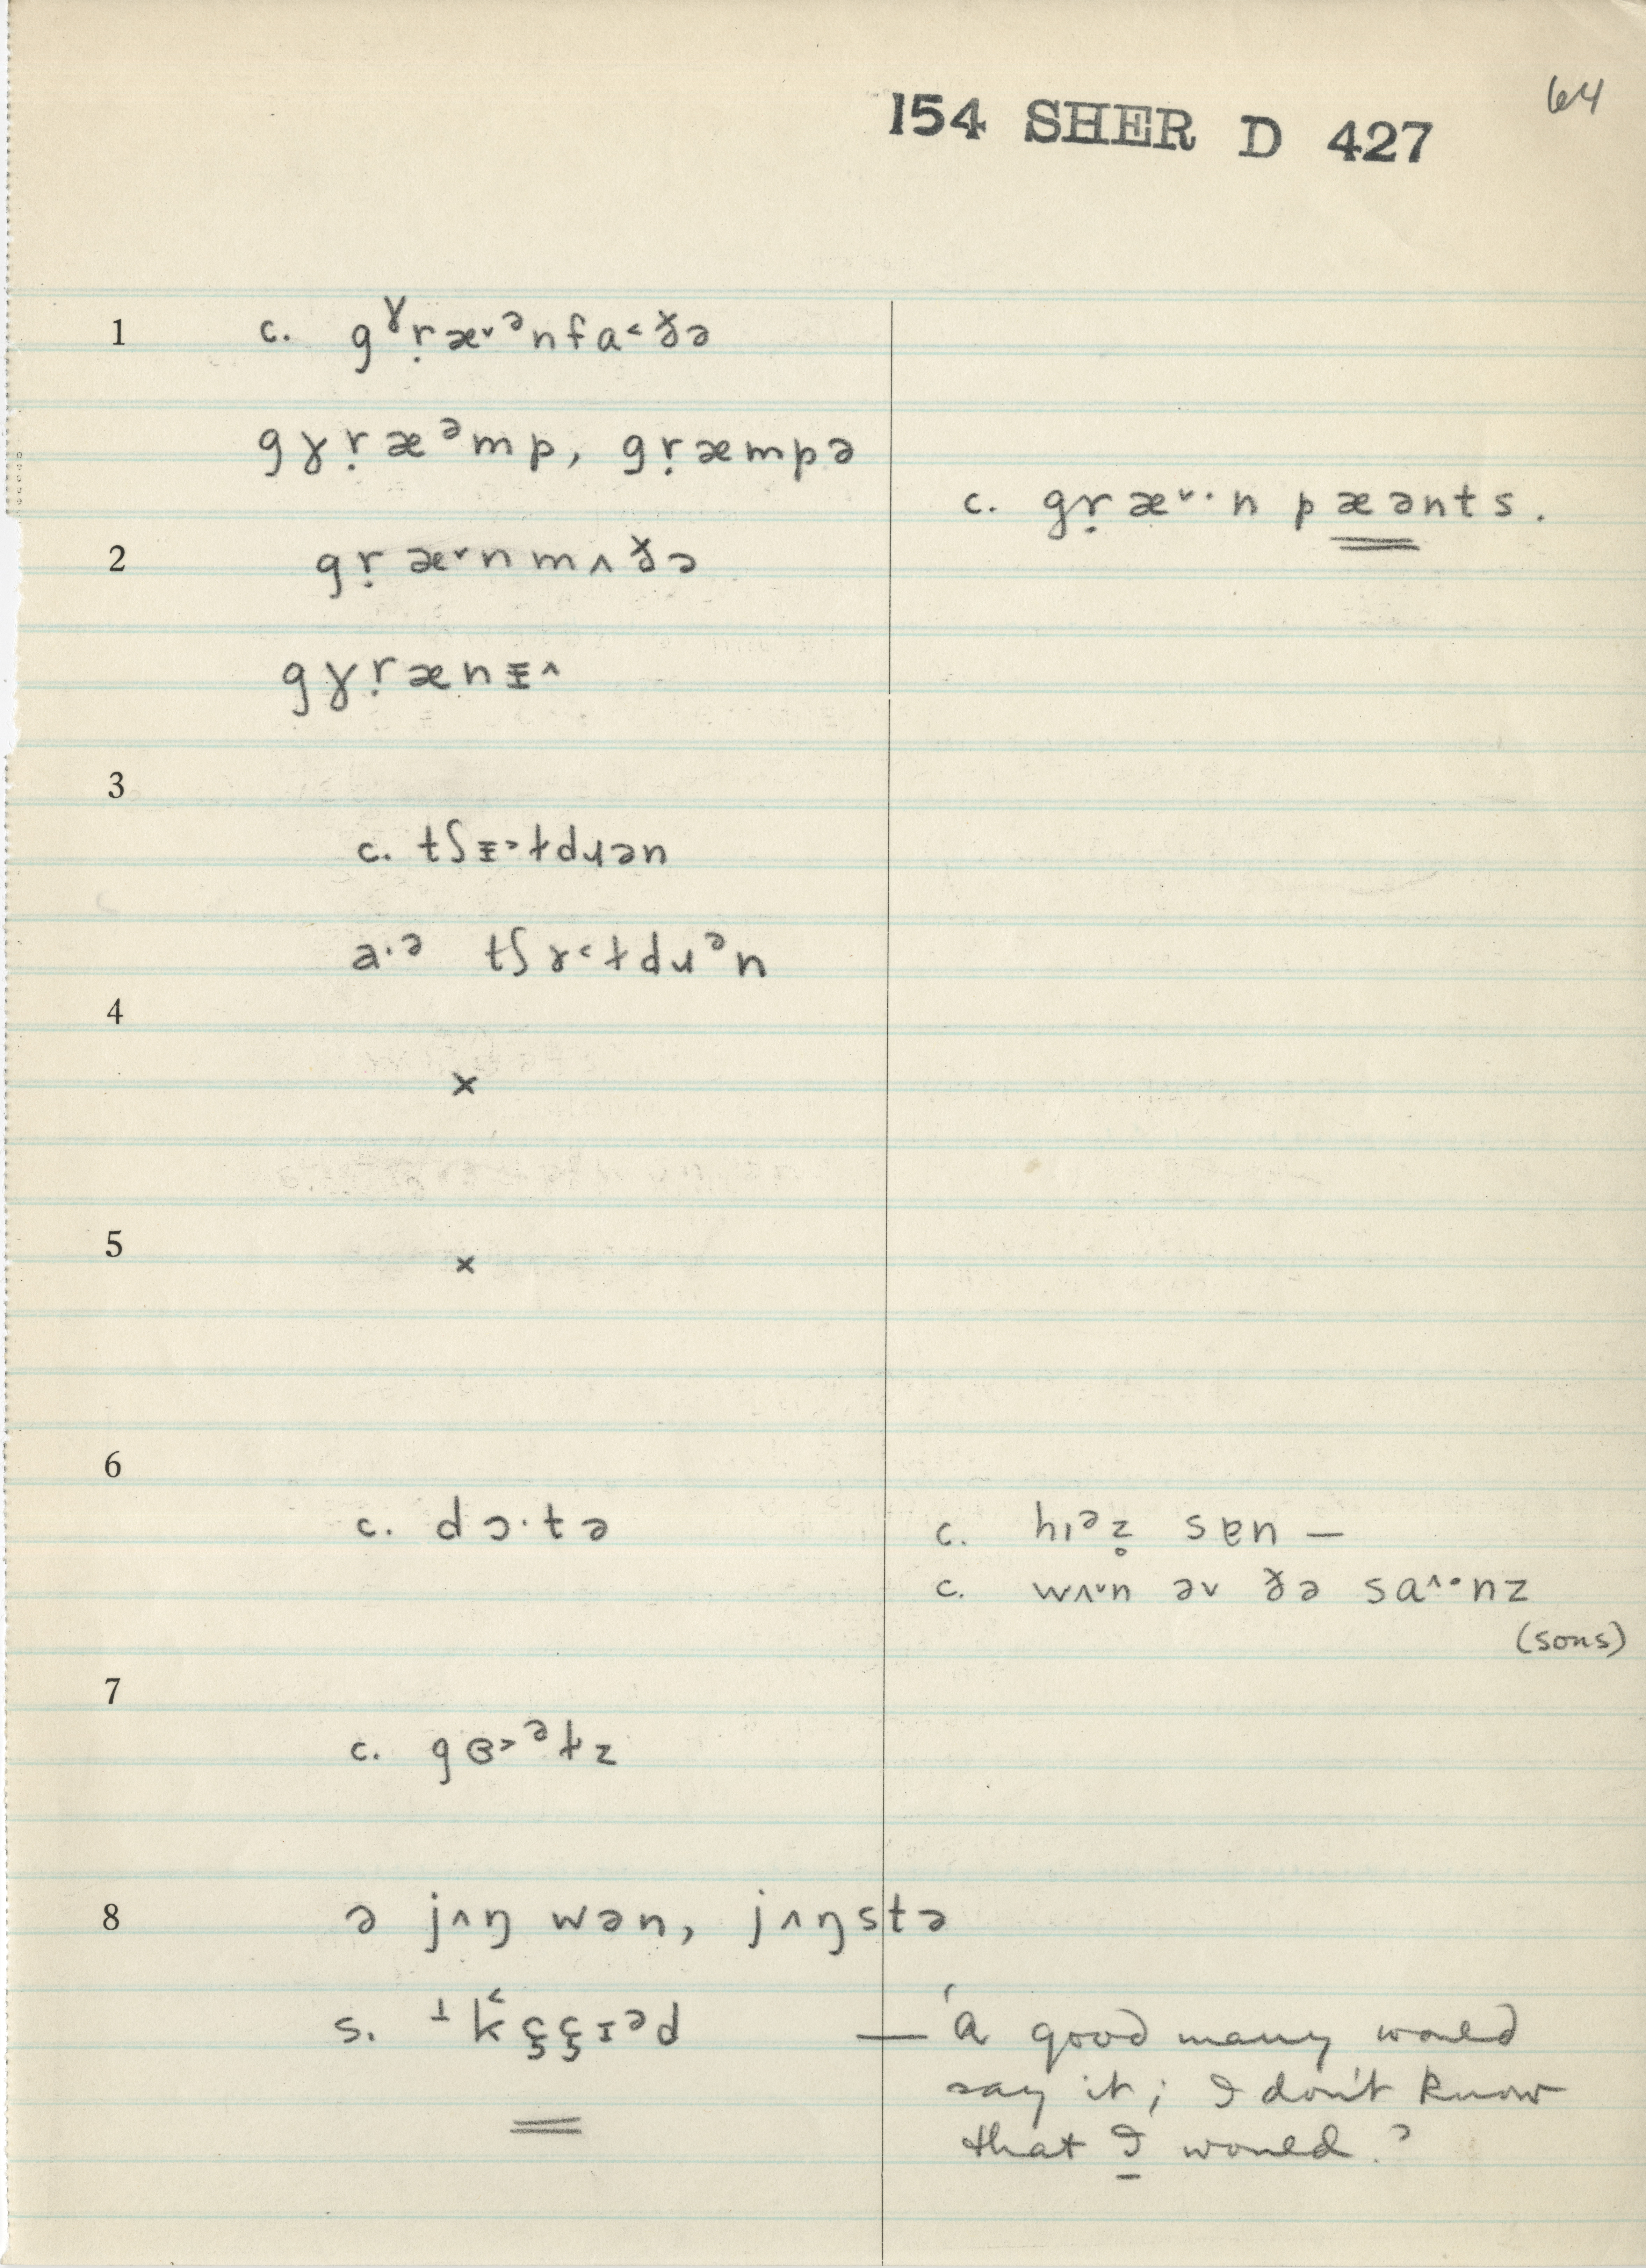 64
154 SHER D 427
1 c. gˠṛæ˅ᵊnfa˂ɤ̌ə
gɤṛæᵊmp, gṛæmpə
c. gṛæ˅·n pæənts.
2 gṛæ˅nmʌɤ̌ə
gɤṛænɪ̵˄
3
c. tʃɪ̵˃ɫdɹən
a·ᵊ tʃɤ˂ɫdɹᵊn
4
×
5
×
6
c. dɔ·tə
c. hɪᵊz̥ sɐn —
c. wʌ˅n əv ɤ̌ə sa˄·nz
(sons)
7
c. gɞ˃ᵊɫz
8 ə jʌŋ wən, jʌŋstə
s. ꜔k̂ʒ̧ʒ̧ɪᵊd — 'a good many would
say it; I don't know
that I would.'